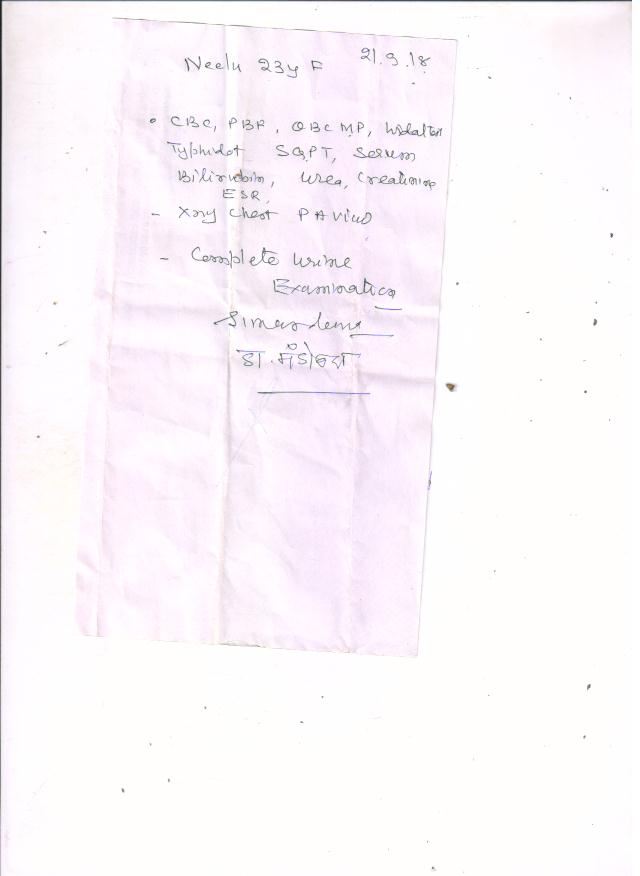 Neelu 23y F 21.9.18
• CBC, PBF, QBC MP, Widal Test
Typhidot SGPT, Serum
Bilirubin, Urea, Creatinine
ESR,
- Xray Chest PA View
- Complete Urine
Examination
डा.